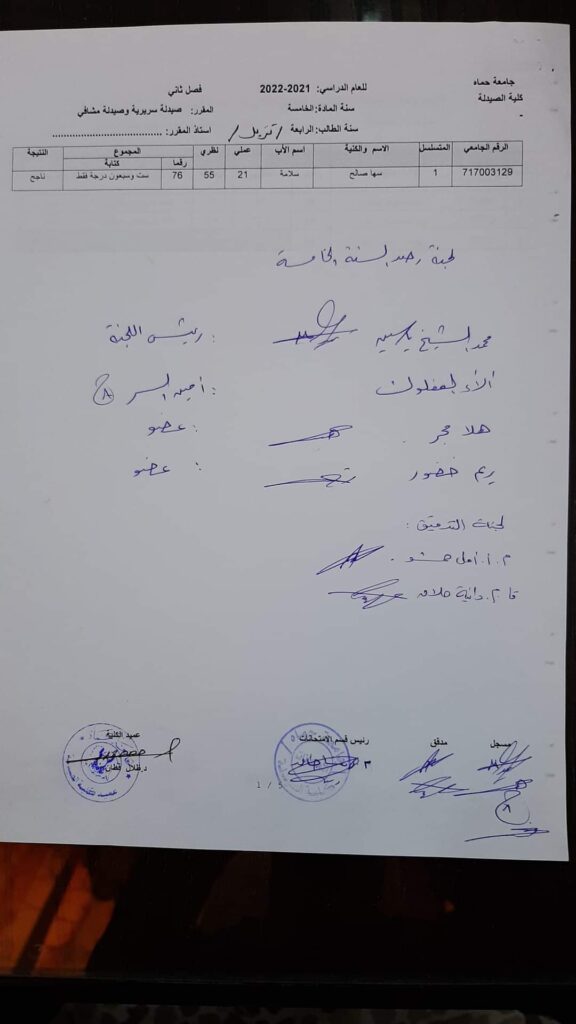 جامعة حماه
كلية الصيدلة
-
للعام الدراسي: 2021-2022 فصل ثاني
سنة المادة: الخامسة المقرر: صيدلة سريرية وصيدلة مشافي
سنة الطالب: الرابعة استاذ المقرر: ......................................
الرقم الجامعي المتسلسل الاسم والكنية اسم الأب عملي نظري المجموع النتيجة
رقما كتابة
717003129 1 سها صالح سلامة 21 55 76 ست وسبعون درجة فقط ناجح
لجنة رصد السنة الخامسة
محمد الشيخ ياسين : رئيس اللجنة
آلاء : أمين السر
هلا : عضو
ريم خضور : عضو
لجنة التدقيق :
م.أ. أمل
دانية حلاق
مسجل مدقق رئيس قسم الامتحانات عميد الكلية
د.طلال قطان
1 /